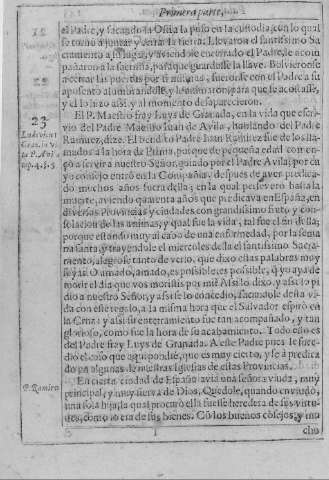 Primera parte,
el Padre, y sacando la Ostia la puso en la custodia; con lo qual
se tornò a juntar y cerrar la tierra. Lleuaron el santissimo Sa
cramento a su lugar, y auiendole encerrado el Padre, le acom
pañaron a la sacristia, para que guardasse la llaue. Boluieronse
a cerrar las puertas por si mismas, fueronse con el Padre a su
aposento alumbrandole, y dixeronle, para que se acostasse,
y el lo hizo assi: y al momento desaparecieron.
23 El P. Maestro fray Luys de Granada, en la vida que escri-
Ludouicus uio del Padre Maestro Iuan de Auila, hablando del Padre
Gran. in vi- Ramirez, dize. El bendito Padre Iuan Ramirez fue de los lla-
ta P. Aui. mados a la hora de Prima, porque de pequeña edad comen-
cap. 4. §. 5 çò a seruir a nuestro Señor, guiado por el Padre Auila; por cu
yo consejo entrò en la Compañia, despues de auer predica-
do muchos años fuera della; en la qual perseuerò hasta la
muerte, auiendo quarenta años que predicaua en España, en
diuersas Prouincias y ciudades con grandissimo fruto y con-
solacion de las animas, y qual fue la vida, tal fue el fin della;
porque estando muy al cabo de una enfermedad, por la sema
na santa, y trayendole el miercoles della el santissimo Sacra-
mento, alegrose tanto de verlo, que dixo estas palabras muy
O amado, amado, es possible, es possible, q̃ yo aya de
morir el dia que vos moristis por mi? Assi lo dixo, y assi lo pi
dio a nuestro Señor, y assi se lo concedio, sacandole desta vi-
da con este regalo, a la misma hora que el Saluador espirò en
la Cruz: y assi su enterramiento fue tan acompañado, y tan
glorioso, como fue la hora de su acabamiento. Todo esto es
del Padre fray Luys de Granada. A este Padre pues le suce-
dio el caso que aqui pondrè, que es muy cierto, y se à predica
do en algunas de nuestras Iglesias de estas Prouincias.
P. Ramirez En cierta ciudad de España auia vna señora viuda, muy
principal, y muy sierua de Dios. Quedole, quando enuiudò,
vna sola hija, la qual procurò ella fuesse heredera de sus virtu-
des, como lo era de sus bienes. Cõ los buenos cõsejos, y mu
cho